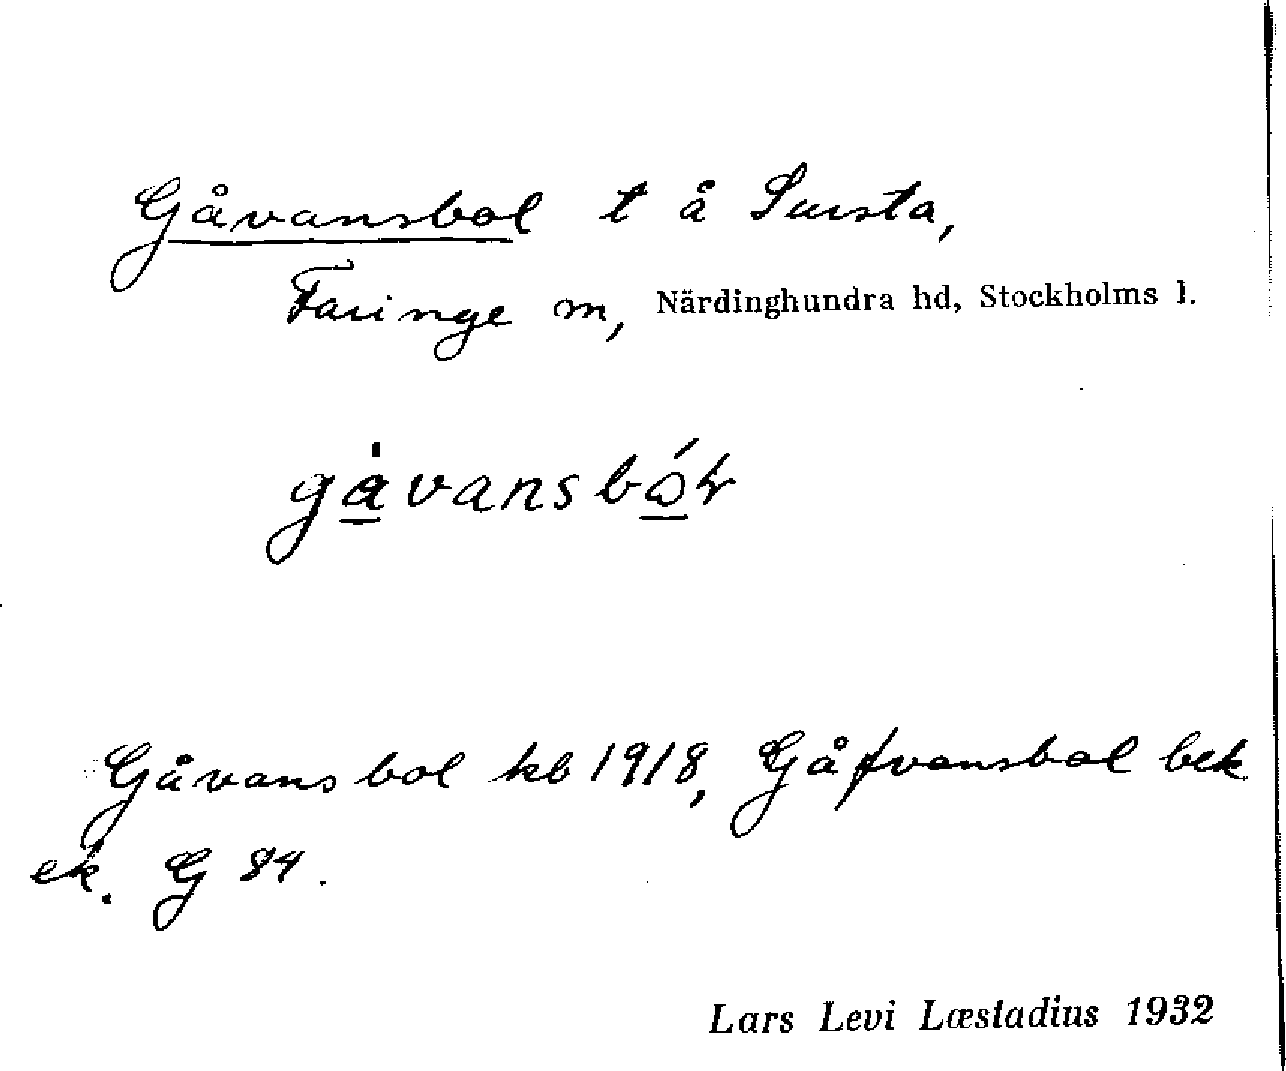 Gåvansbol t å Susta,
Faringe m, Närdinghundra hd, Stockholms l.
gåvansbół
Gåvansbol kb 1918, Gåfvansbol bek
ek. G 84.
Lars Levi Læstadius 1932